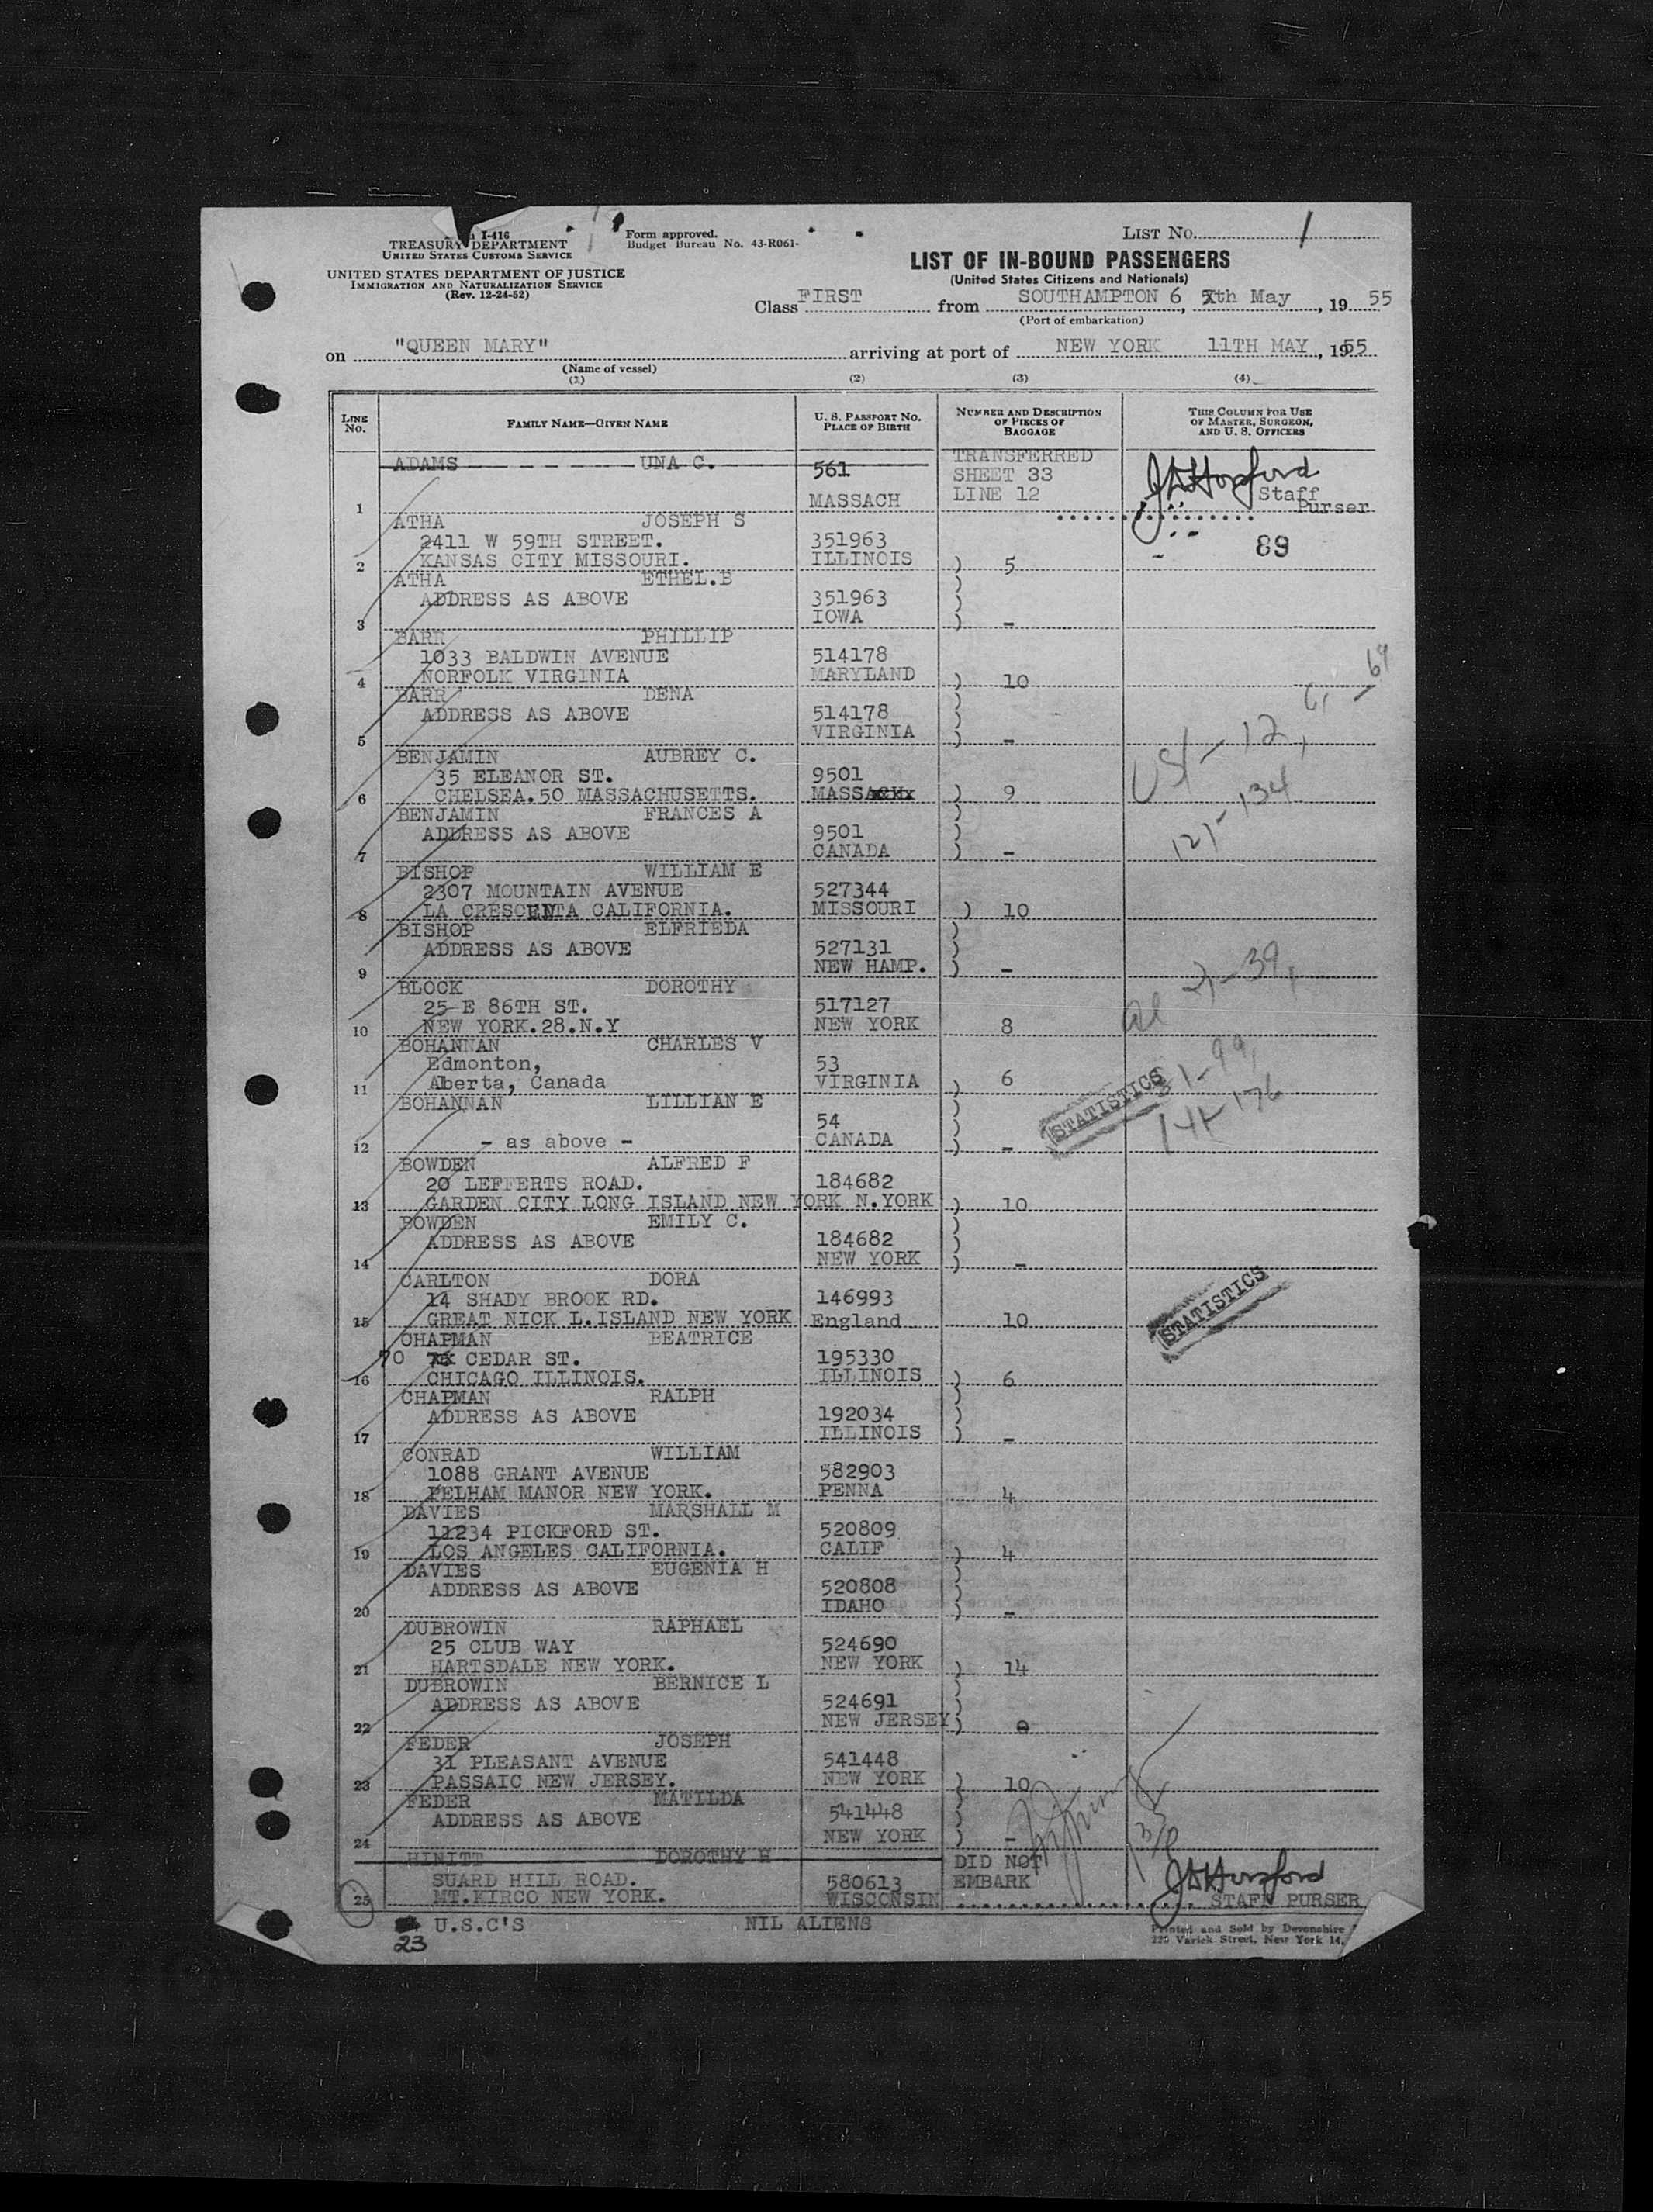 I-416
TREASURY DEPARTMENT
UNITED STATES CUSTOMS SERVICE
UNITED STATES DEPARTMENT OF JUSTICE
IMMIGRATION AND NATURALIZATION SERVICE
(Rev. 12-24-52)
Form approved.
Budget Bureau No. 43-R061-
LIST NO. 1
LIST OF IN-BOUND PASSENGERS
(United States Citizens and Nationals)
Class FIRST from SOUTHAMPTON 6 th May, 19 55
(Port of embarkation)
on "QUEEN MARY" arriving at port of NEW YORK 11TH MAY, 1955
(Name of vessel)
(1) (2) (3) (4)
LINE NO. FAMILY NAME—GIVEN NAME U. S. PASSPORT NO. PLACE OF BIRTH NUMBER AND DESCRIPTION OF PIECES OF BAGGAGE THIS COLUMN FOR USE OF MASTER, SURGEON, AND U. S. OFFICERS
ADAMS UNA C. 561 TRANSFERRED
SHEET 33
1 MASSACH LINE 12 Staff Purser
ATHA JOSEPH S
2411 W 59TH STREET. 351963 89
2 KANSAS CITY MISSOURI. ILLINOIS ) 5
ATHA ETHEL.B )
ADDRESS AS ABOVE 351963 )
3 IOWA ) -
BARR PHILLIP
1033 BALDWIN AVENUE 514178
4 NORFOLK VIRGINIA MARYLAND ) 10
BARR DENA )
ADDRESS AS ABOVE 514178 )
5 VIRGINIA ) -
BENJAMIN AUBREY C.
35 ELEANOR ST. 9501
6 CHELSEA.50 MASSACHUSETTS. MASSACHx ) 9
BENJAMIN FRANCES A )
ADDRESS AS ABOVE 9501 )
7 CANADA ) -
BISHOP WILLIAM E
2307 MOUNTAIN AVENUE 527344
8 LA CRESCENTA CALIFORNIA. MISSOURI ) 10
BISHOP ELFRIEDA )
ADDRESS AS ABOVE 527131 )
9 NEW HAMP. ) -
BLOCK DOROTHY
25 E 86TH ST. 517127
10 NEW YORK.28.N.Y NEW YORK 8
BOHANNAN CHARLES V
Edmonton, 53
11 Alberta, Canada VIRGINIA ) 6
BOHANNAN LILLIAN E )
54 )
12 - as above - CANADA ) -
STATISTICS
BOWDEN ALFRED F
20 LEFFERTS ROAD. 184682
13 GARDEN CITY LONG ISLAND NEW YORK N.YORK ) 10
BOWDEN EMILY C. )
ADDRESS AS ABOVE 184682 )
14 NEW YORK ) -
CARLTON DORA
14 SHADY BROOK RD. 146993
15 GREAT NICK L.ISLAND NEW YORK England 10
STATISTICS
CHAPMAN BEATRICE
70 CEDAR ST. 195330
16 CHICAGO ILLINOIS. ILLINOIS ) 6
CHAPMAN RALPH )
ADDRESS AS ABOVE 192034 )
17 ILLINOIS ) -
CONRAD WILLIAM
1088 GRANT AVENUE 582903
18 PELHAM MANOR NEW YORK. PENNA 4
DAVIES MARSHALL M
11234 PICKFORD ST. 520809
19 LOS ANGELES CALIFORNIA. CALIF ) 4
DAVIES EUGENIA H )
ADDRESS AS ABOVE 520808 )
20 IDAHO ) -
DUBROWIN RAPHAEL
25 CLUB WAY 524690
21 HARTSDALE NEW YORK. NEW YORK ) 14
DUBROWIN BERNICE L )
ADDRESS AS ABOVE 524691 )
22 NEW JERSEY )
FEDER JOSEPH
31 PLEASANT AVENUE 541448
23 PASSAIC NEW JERSEY. NEW YORK ) 10
FEDER MATILDA )
ADDRESS AS ABOVE 541448 )
24 NEW YORK ) -
HINITT DOROTHY H DID NOT
SUARD HILL ROAD. 580613 EMBARK
25 MT.KIRCO NEW YORK. WISCONSIN STAFF PURSER
U.S.C'S NIL ALIENS
23
Printed and Sold by Devonshire
225 Varick Street, New York 14,